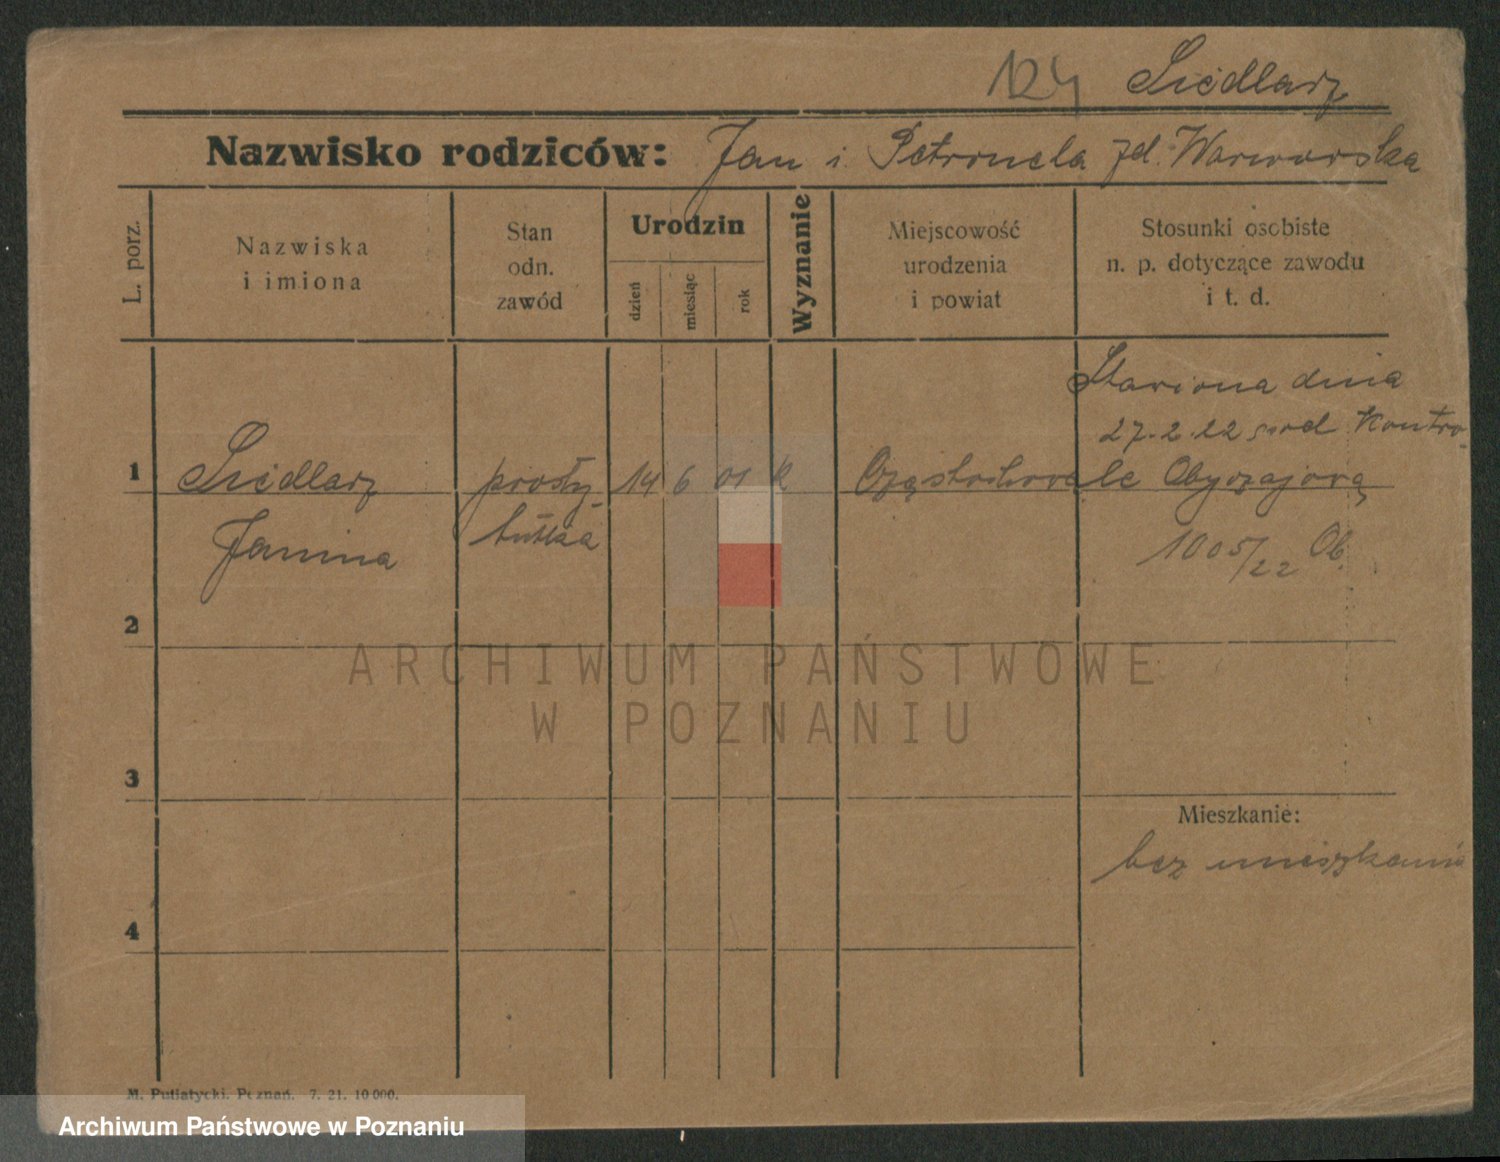 124 Siedlarz
Nazwisko rodziców: Jan i Petronela zd. Warwarska
L. porz.
Nazwiska
i imiona
Stan
odn.
zawód
Urodzin
dzień
miesiąc
rok
Wyznanie
Miejscowość
urodzenia
i powiat
Stosunki osobiste
n. p. dotyczące zawodu
i t. d.
1
Siedlarz
Janina
prosty-
tutka
14 6 01 k
Częstochowa
Stawiona dnia
27.2.22 pod Kontro-
lę Obyczajową
1005/22 Ob.
2
3
4
Mieszkanie:
bez mieszkania
M. Putiatycki. Poznań. 7. 21. 10000.
ARCHIWUM PAŃSTWOWE
W POZNANIU
Archiwum Państwowe w Poznaniu